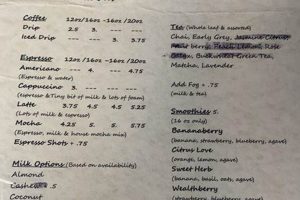 Coffee 12oz/16oz -16oz/20oz
Drip 2.5 3. --- ---
Iced Drip --- 3. --- 3.75
Espresso 12oz/16oz -16oz/20oz
Americano --- 4. --- 4.75
(Espresso & water)
Cappuccino 3 --- --- ---
(espresso & Tiny bit of milk & lots of foam)
Latte 3.75 4.5 4.5 5.25
(Lots of milk & espresso)
Mocha 4.25 5. 5. 5.75
(Espresso, milk & house mocha mix)
Espresso Shots + .75
Milk Options (Based on availability)
Almond
Cashew .5
Coconut
Tea (Whole leaf & assorted)
Chai, Early Grey, Jasmine
berry, Peach Lemon, Rose
Buckwheat Green Tea,
Matcha, Lavender
Add Fog + .75
(milk & tea)
Smoothies 5.
(16 oz only)
Bananaberry
(banana, strawberry, blueberry, agave)
Citrus Love
(orange, lemon, agave)
Sweet Herb
(banana, basil, oats, agave)
Wealthberry
(strawberry, blueberry, agave)